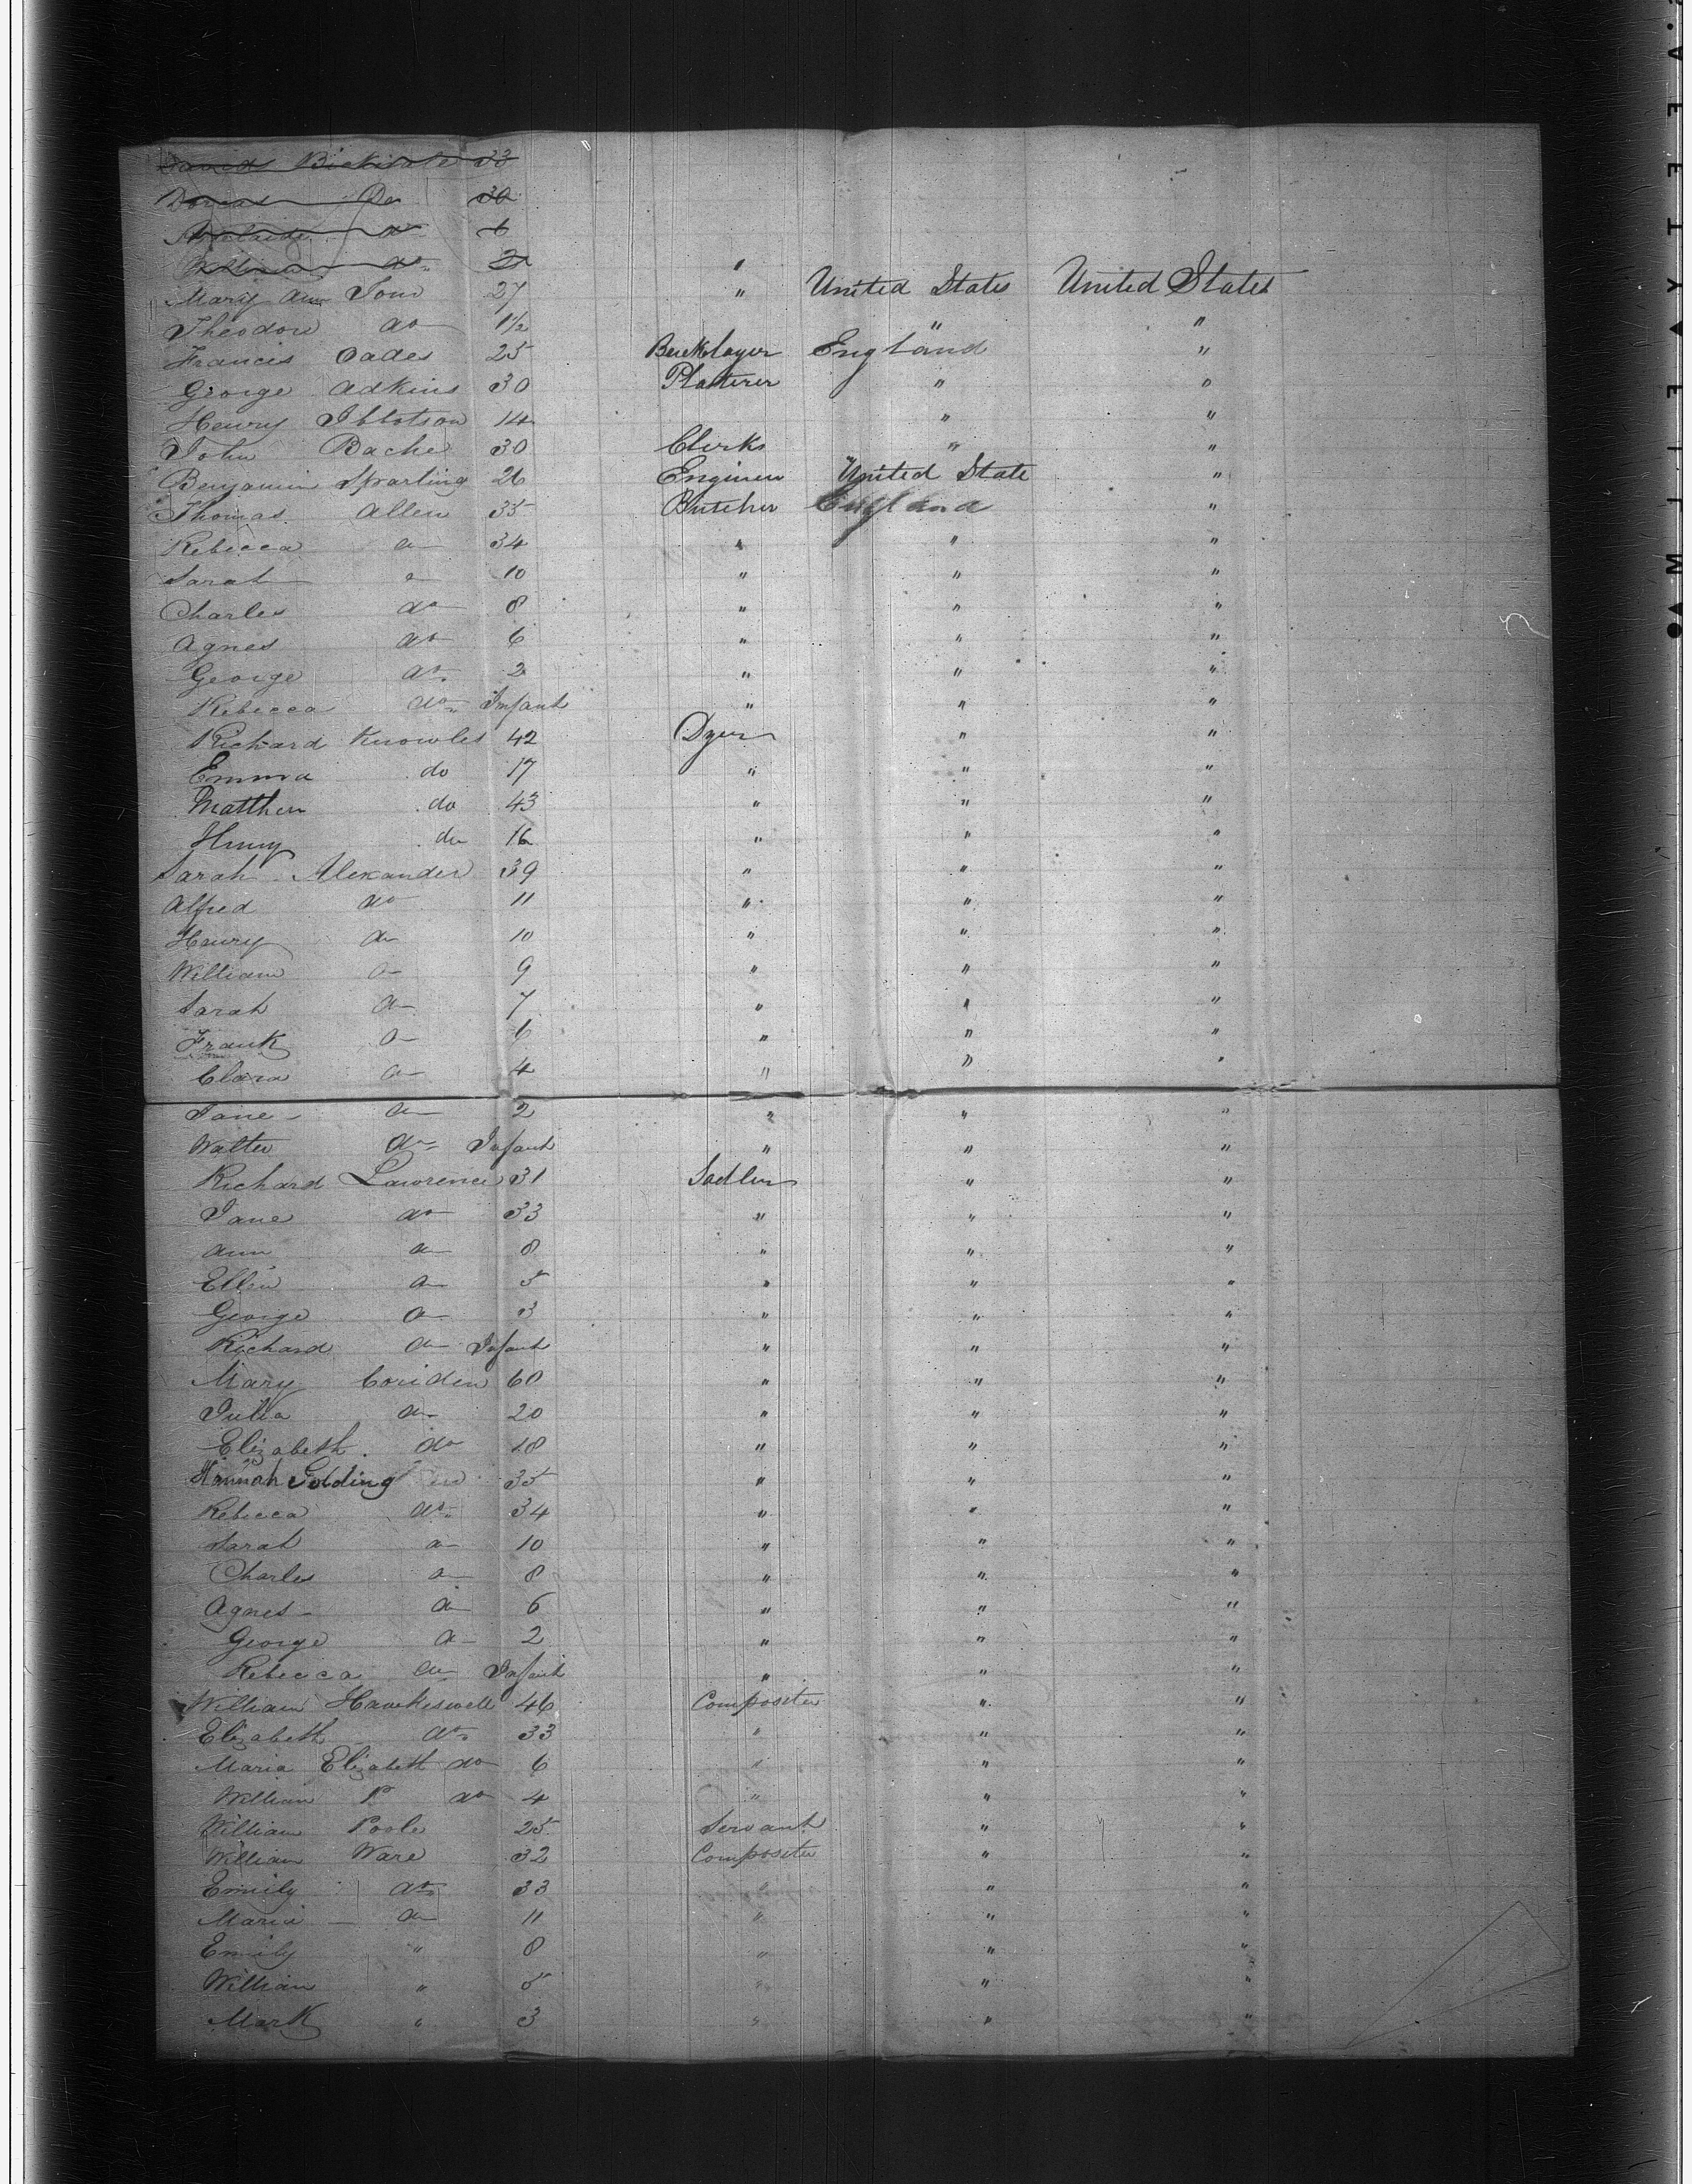 David Bickitate 33
Dorcas Do 30
Adelaide do 6
William do 2
Mary Ann 27 " United States United States
Theodore do 1½ " "
Francis Oades 25 Bricklayer England "
George Adkins 30 Plasterer " "
Henry Ibbotson 14 " "
John Bache 30 Clerk " "
Benjamin Sparling 26 Engineer United State "
Thomas Allen 35 Butcher England "
Rebecca do 34 " " "
Sarah do 10 " " "
Charles do 8 " " "
Agnes do 6 " " "
George do 2 " " "
Rebecca do Infant " " "
Richard Knowles 42 Dyer " "
Emma do 17 " " "
Matthew do 43 " " "
Henry do 16 " " "
Sarah Alexander 39 " " "
Alfred do 11 " " "
Henry do 10 " " "
William do 9 " " "
Sarah do 7 " " "
Frank do 6 " " "
Clara do 4 " " "
Jane do 2 " " "
Walter do Infant " " "
Richard Lawrence 31 Sadler " "
Jane do 33 " " "
Ann do 8 " " "
Ellen do 5 " " "
George do 3 " " "
Richard do Infant " " "
Mary Coriden 60 " " "
Julia do 20 " " "
Elizabeth do 18 " " "
Hannah Golding 35 " " "
Rebecca do 34 " " "
Sarah do 10 " " "
Charles do 8 " " "
Agnes do 6 " " "
George do 2 " " "
Rebecca do Infant " " "
William Hawkeswell 46 Compositer " "
Elizabeth do 33 " " "
Maria Elizabeth do 6 " " "
William P do 4 " " "
William Poole 25 Servant " "
William Ware 32 Compositer " "
Emily do 33 " " "
Maria do 11 " " "
Emily " 8 " " "
William " 5 " " "
Mark " 3 " " "